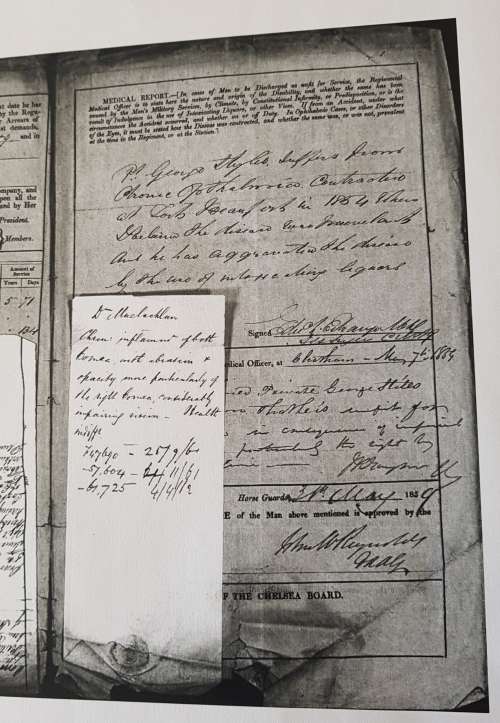 at date he has
by the Regu-
r Arrears of
ust demands,
and in
MEDICAL REPORT.—[In cases of Men to be Discharged as unfit for Service, the Regimental
Medical Officer is to state here the nature and origin of the Disability, and whether the same has been
caused by the Man's Military Service, by Climate, by Constitutional Infirmity, or Predisposition, or is the
result of Indulgence in the use of Intoxicating Liquors, or other Vices. If from an Accident, under what
circumstances the Accident occurred, and whether on or off Duty. In Ophthalmic Cases, or other Disorders
of the Eyes, it must be stated how the Disease was contracted, and whether the same was, or was not, prevalent
at the time in the Regiment, or at the Station.]
Pt. George Styles, Suffers from
Chronic Opthalmia Contracted
at Fort Beaufort in 1854 where
the disease
and he has aggravated the disease
by the use of intoxicating liquors
ompany, and
upon all the
and by Her
President.
Members.
Amount of
Service
Years Days
5 71
Signed
dical Officer, at Chatham – May 7th 1859
Private George Stiles
is unfit for
in consequence of impaired
particularly the right eye
Horse Guards, 31st May 1859
E of the Man above mentioned is approved by the
John W Reynolds
OF THE CHELSEA BOARD.
Dr Maclachlan
Chron: inflamn of both
Cornea, with abrasion &
opacity more particularly of
the right Cornea, considerably
impairing vision – Health
indifft
– 25/9/60
– 57,604 – 11/61
– 61,725 4/4/62